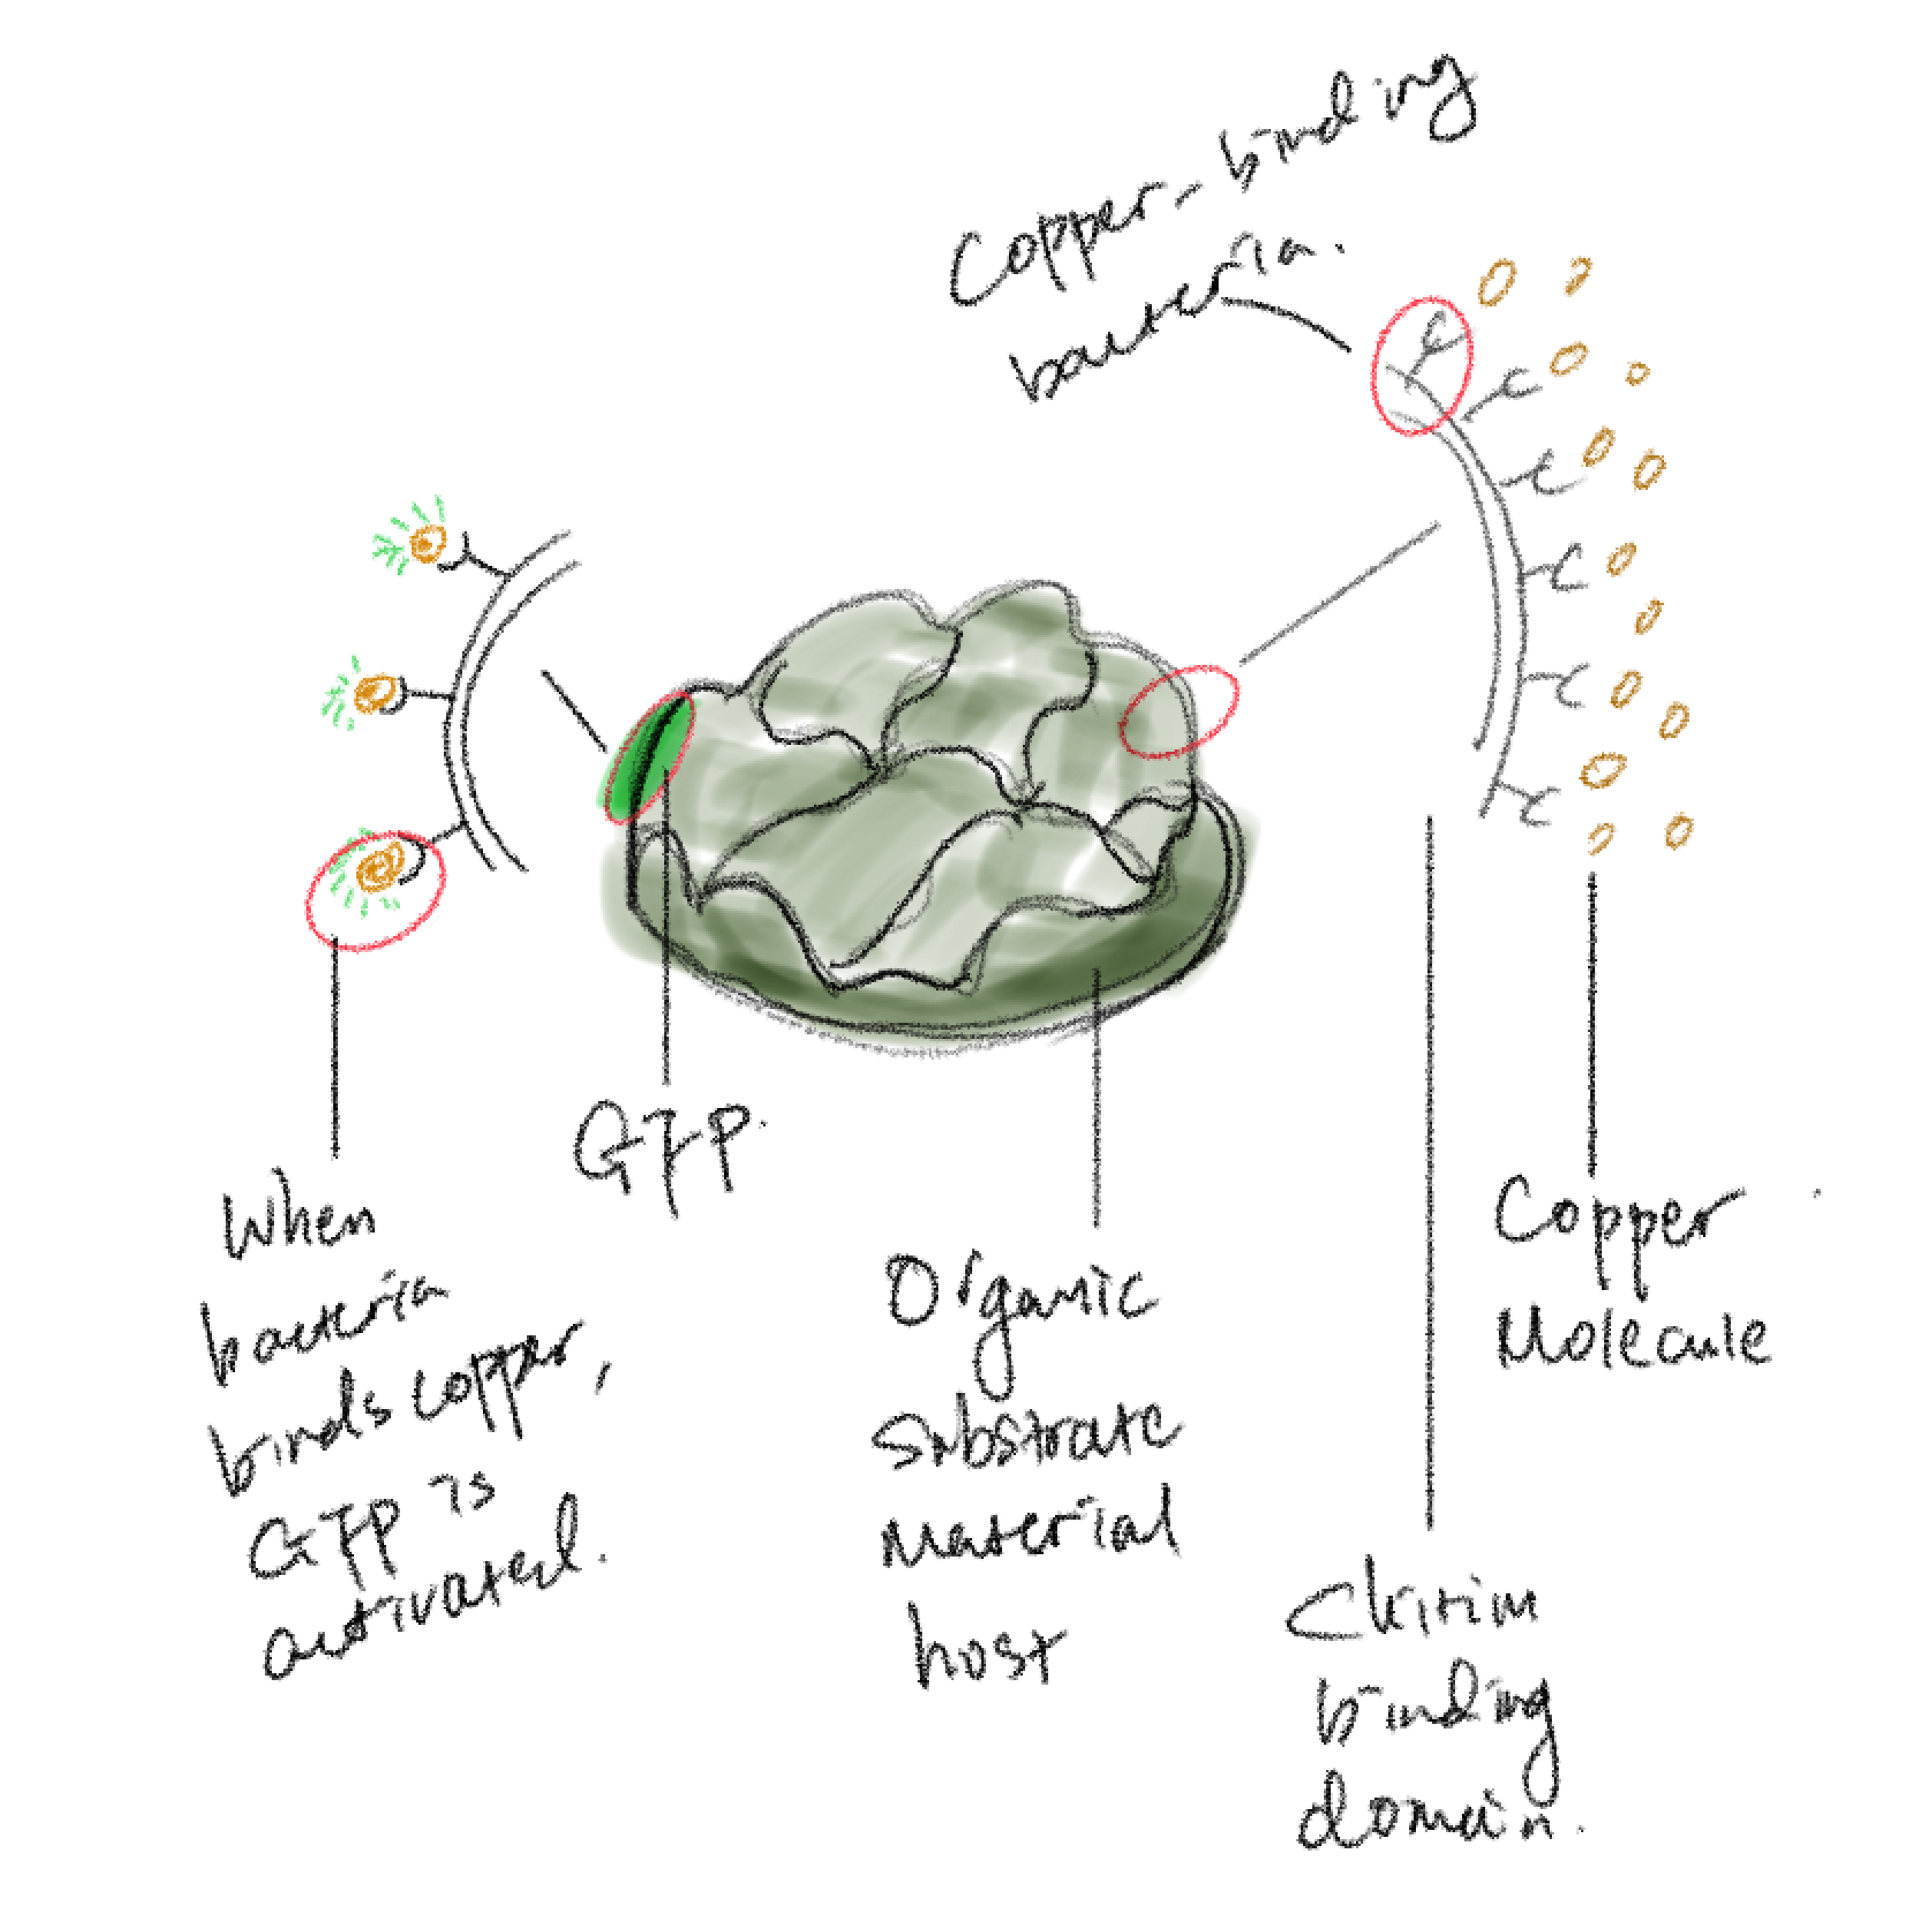 Copper-binding
bacteria.
When
bacteria
binds copper,
GFP is
activated.
GFP.
Organic
Substrate
Material
host
Chitin
binding
domain.
Copper
Molecule